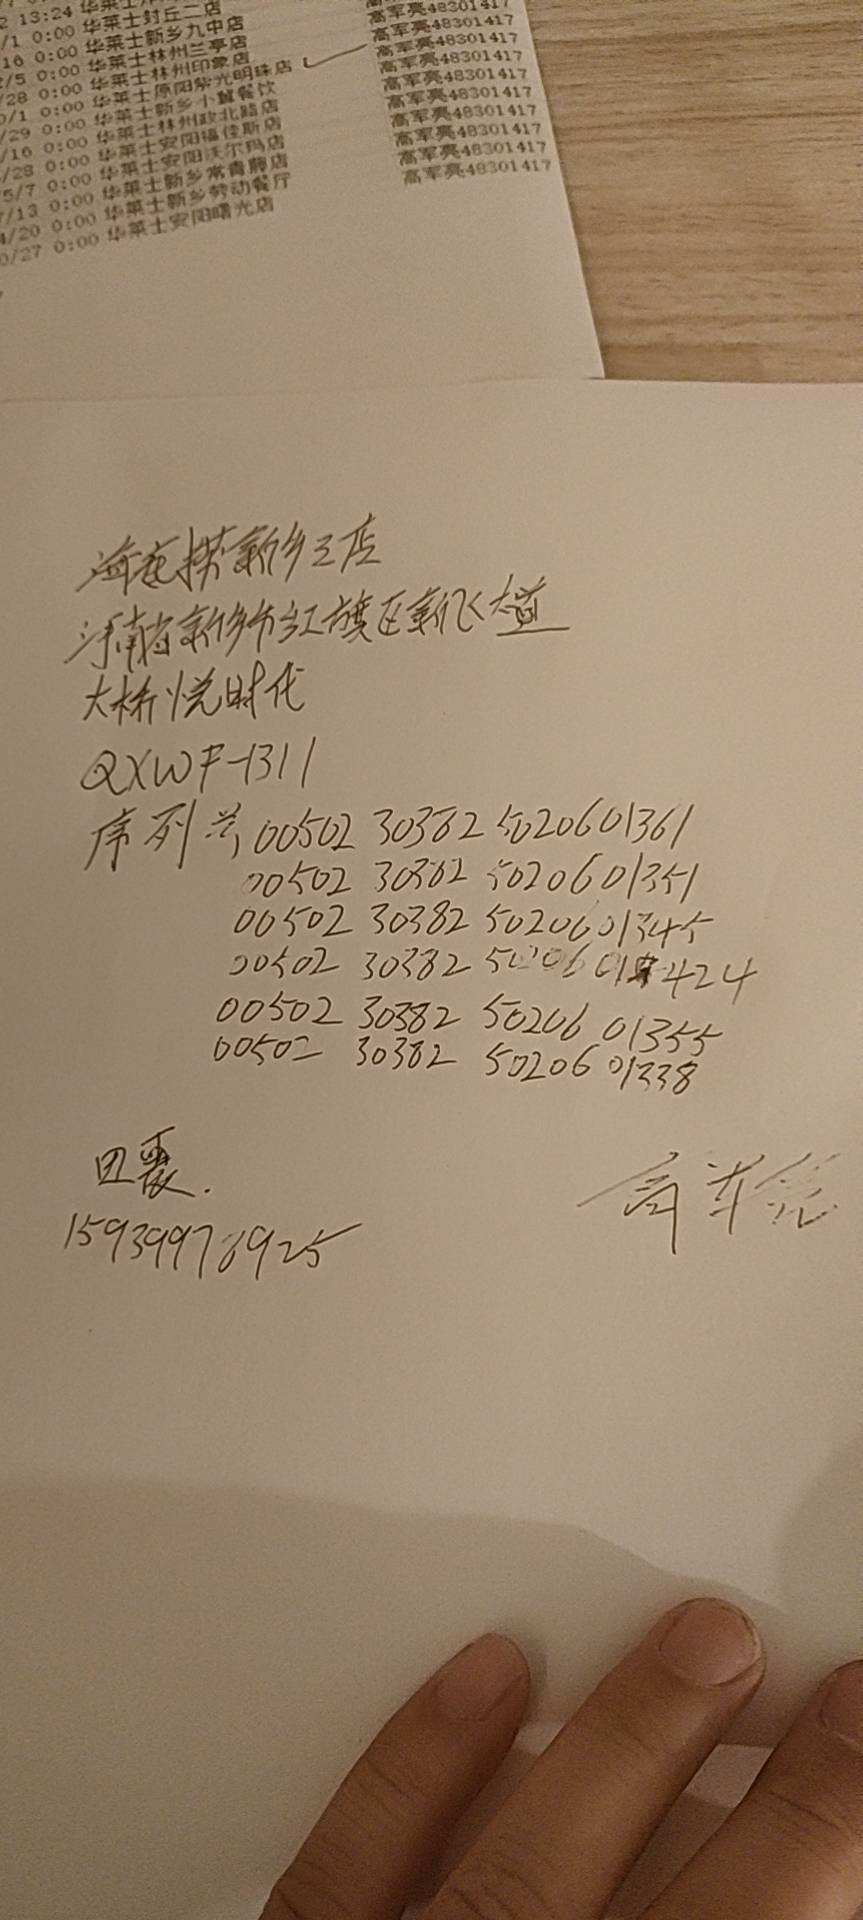 2 13:24 华莱士
/1 0:00 华莱士封丘二店
16 0:00 华莱士新乡九中店 高军亮48301417
2/5 0:00 华莱士林州兰亭店 高军亮48301417
/28 0:00 华莱士林州印象店 高军亮48301417
0/1 0:00 华莱士原阳紫光明珠店 高军亮48301417
/29 0:00 华莱士新乡小冀餐饮 高军亮48301417
/16 0:00 华莱士林州政北路店 高军亮48301417
/28 0:00 华莱士安阳福佳斯店 高军亮48301417
5/7 0:00 华莱士安阳沃尔玛店 高军亮48301417
/13 0:00 华莱士新乡常青藤店 高军亮48301417
4/20 0:00 华莱士新乡劳动餐厅
0/27 0:00 华莱士安阳曙光店
海底捞新乡三店
河南省新乡市红旗区新飞大道
大桥悦时代
QXWF-1311
序列号, 00502 30382 5020601361
00502 30382 5020601351
00502 30382 5020601345
00502 30382 5020601424
00502 30382 50206 01355
00502 30382 50206 01338
田震.
15939976925
高军亮